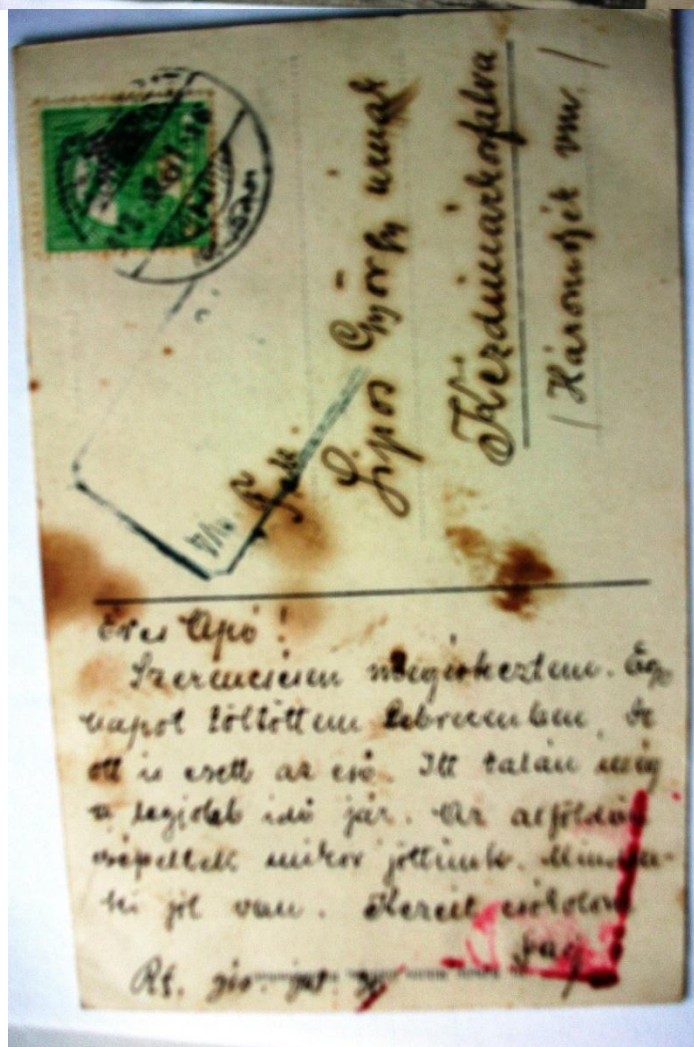 Lipos György úrnak
Kézdimárkosfalva
/ Háromszék vm. /
Édes Apó!
Szerencsésen megérkeztem. Egy
napot töltöttem Debrecenben, de
ott is esett az eső. Itt talán még
a legjobb idő jár. Az alföldön
csépeltek mikor jöttünk. Minden-
ki jól van. Kezeit csókolom